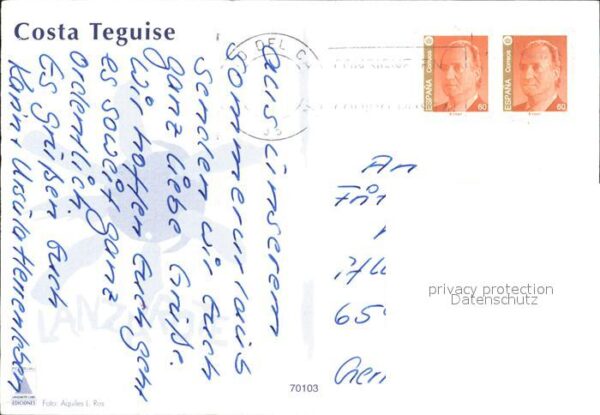 Costa Teguise
Aus unserem
Sommerurlaub
senden wir Euch
ganz liebe Grüße.
Wir hoffen Euch geht
es soweit ganz
ordentlich
Es grüßen Euch
Karin + Ursula
ESPAÑA
Correos
60
ESPAÑA
Correos
60
An
65
privacy protection
Datenschutz
70103
LANZAROTE
EDICIONES
Foto: Aquiles E. Ros